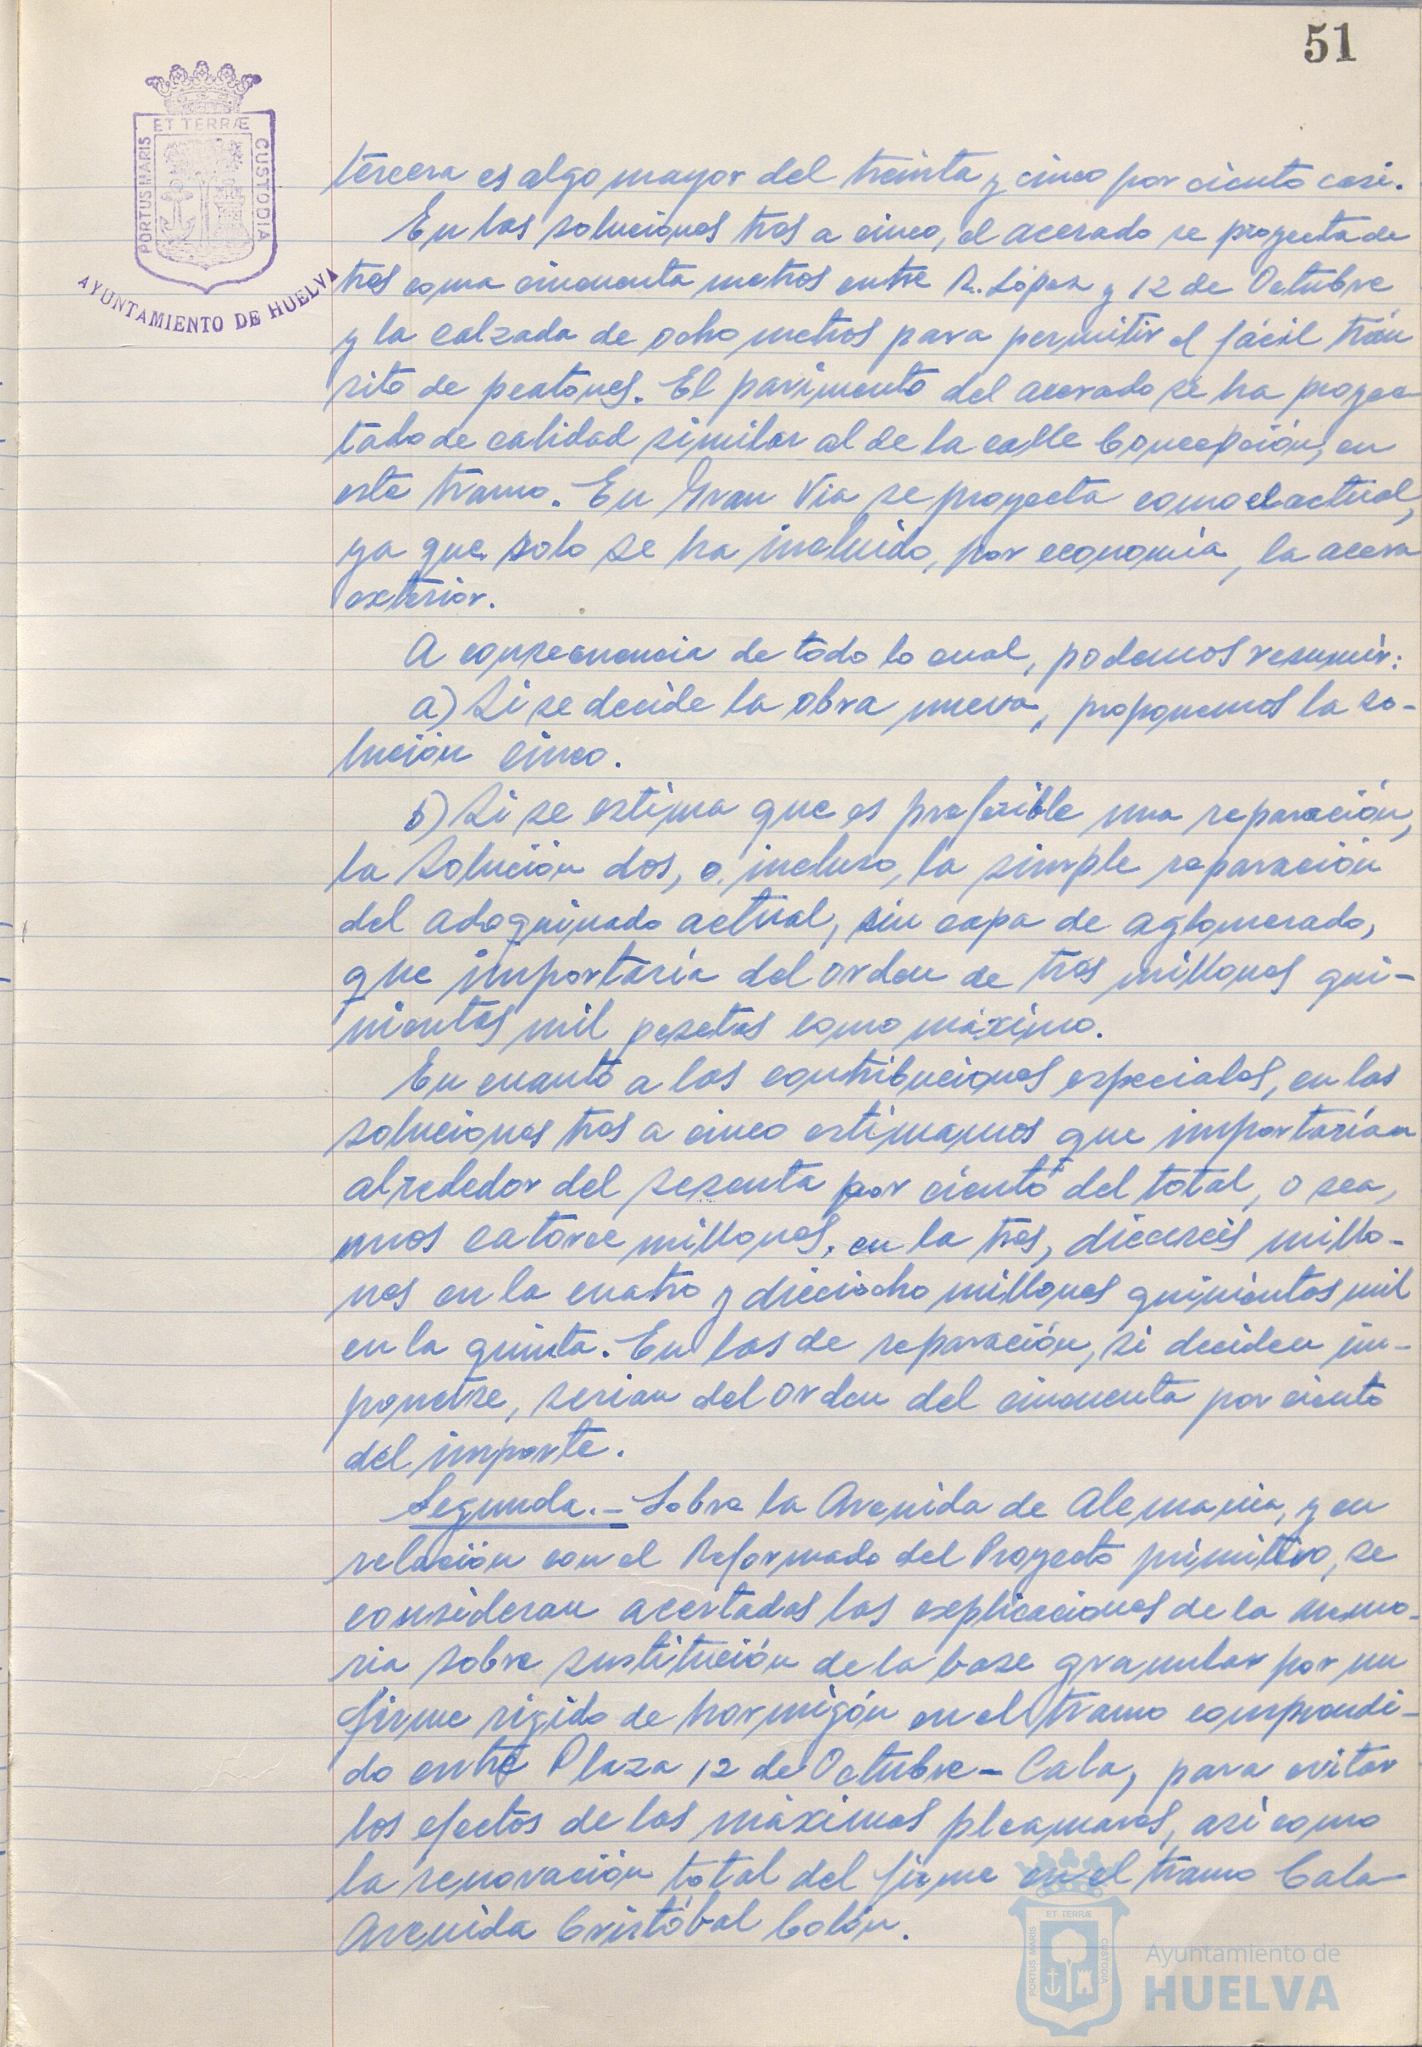 51
ET TERRÆ
PORTUS MARIS
CUSTODIA
AYUNTAMIENTO DE HUELVA
tercera es algo mayor del treinta y cinco por ciento casi.
En las soluciones tres a cinco, el acerado se proyecta de
tres coma cincuenta metros entre R. López y 12 de Octubre
y la calzada de ocho metros para permitir el fácil trán
sito de peatones. El pavimento del acerado se ha proyec-
tado de calidad similar al de la calle Concepción, en
este tramo. En Gran Via se proyecta como el actual,
ya que solo se ha incluido, por economía, la acera
exterior.
A consecuencia de todo lo cual, podemos resumir:
a) Si se decide la obra nueva, proponemos la so-
lución cinco.
b) Si se estima que es preferible una reparación,
la solución dos, o, incluso, la simple reparación
del adoquinado actual, sin capa de aglomerado,
que importaría del orden de tres millones qui-
nientas mil pesetas como máximo.
En cuanto a las contribuciones especiales, en las
soluciones tres a cinco estimamos que importarían
alrededor del sesenta por ciento del total, o sea,
unos catorce millones, en la tres, dieciseis millo-
nes en la cuatro y dieciocho millones quinientas mil
en la quinta. En las de reparación, si deciden im-
ponerse, serian del orden del cincuenta por ciento
del importe.
Segunda.- Sobre la Avenida de Alemania, y en
relación con el Reformado del Proyecto primitivo, se
consideran acertadas las explicaciones de la memo-
ria sobre sustitución de la base granular por un
firme rígido de hormigón en el tramo comprendi-
do entre Plaza 12 de Octubre - Cala, para evitar
los efectos de las máximas pleamares, así como
la renovación total del firme en el tramo Cala-
Avenida Cristóbal Colón.
ET TERRÆ
PORTUS MARIS
CUSTODIA
Ayuntamiento de
HUELVA